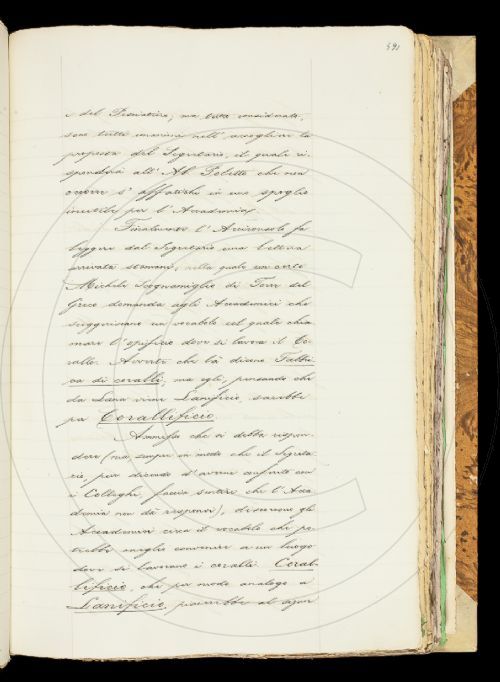 591
e del Presidente; ma tutto considerato,
sono tutti unanimi nell'accogliere la
proposta del Segretario, il quale ri-
sponderà all'Ab. Poletto che non
occorre s'affatichi in uno spoglio
inutile per l'Accademia.
Finalmente l'Arciconsolo fa
leggere dal Segretario una lettera
arrivata stamani, nella quale un certo
Michele Scognamiglio di Torre del
Greco domanda agli Accademici che
suggeriscano un vocabolo col quale chia-
mare l'opificio dove si lavora il Co-
rallo. Avverte che là dicono Fabbri-
ca di coralli, ma egli, pensando che
da Lana viene Lanificio, sarebbe
per Corallificio.
Ammesso che si debba rispon-
dere (ma sempre in modo che il Segreta-
rio, pur dicendo d'averne conferito con
i Colleghi, faccia sentire che l'Acca-
demia non dà responsi), discorrono gli
Accademici circa il vocabolo che po-
trebbe meglio convenire a un luogo
dove si lavorano i coralli. Coral-
lificio, che per modo analogo a
Lanificio, piacerebbe al signor